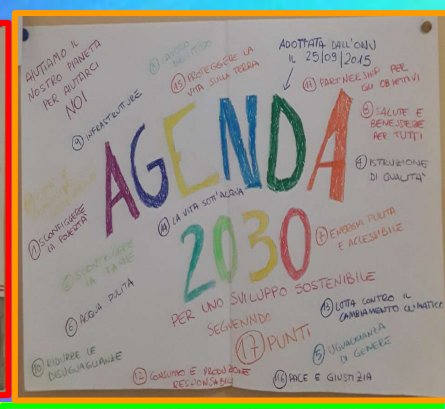 AIUTIAMO IL
NOSTRO PIANETA
PER AIUTARCI
NOI
8 LAVORO
DIGNITOSO
15 PROTEGGERE LA
VITA SULLA TERRA
ADOTTATA DALL'ONU
IL 25/09/2015
17 PARTNERSHIP PER
GLI OBIETTIVI
9 INFRASTRUTTURE
3 SALUTE E
BENESSERE
PER TUTTI
AGENDA
4 ISTRUZIONE
DI QUALITA'
1 SCONFIGGERE
LA POVERTA'
LA VITA SOTT'ACQUA
7 ENERGIA PULITA
E ACCESSIBILE
2 SCONFIGGERE
LA FAME
2030
6 ACQUA PULITA
PER UNO SVILUPPO SOSTENIBILE
SEGUENDO
17 PUNTI
13 LOTTA CONTRO IL
CAMBIAMENTO CLIMATICO
5 UGUAGLIANZA
DI GENERE
10 RIDURRE LE
DISUGUAGLIANZE
12 CONSUMO E PRODUZIONE
RESPONSABILI
16 PACE E GIUSTIZIA